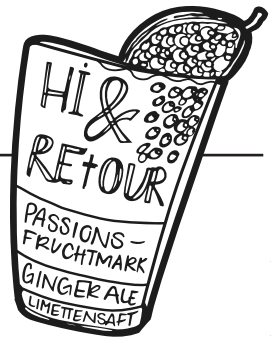 Hi &
REtOUR
PASSIONS-
FRUCHTMARK
GINGER ALE
LIMETTENSAFT